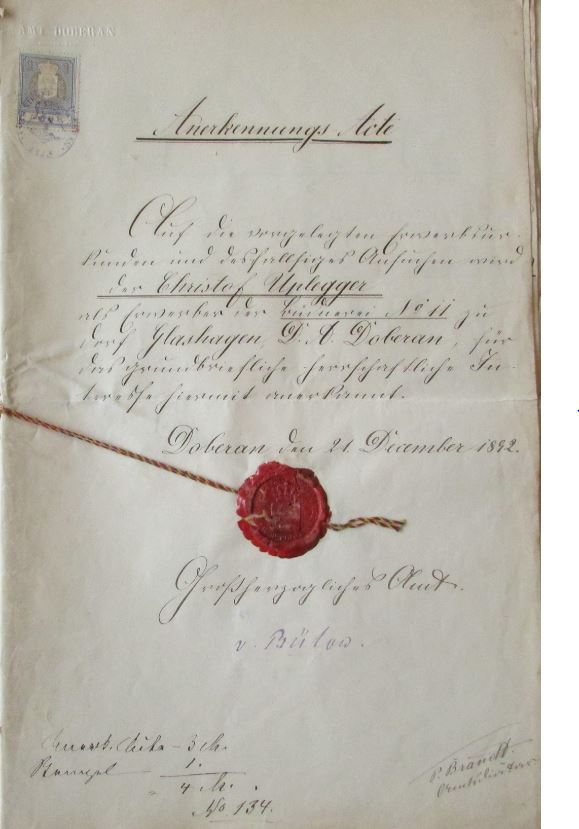 AMT DOBERAN
Anerkennungs Acte
Auf die vorgelegten Erwerbsur-
kunden und desfallsiges Ansuchen wird
der Christof Uplegger
als Erwerber der Büdnerei No 11 zu
Dorf Glashagen, D. A. Doberan, für
das grundbriefliche herrschaftliche In-
teresse hiermit anerkannt.
Doberan den 21. December 1892.
Großherzogliches Amt.
v. Bülow.
Acte - 3 M.
Stempel 1.
4 M.
No 134.
P. Brandt.